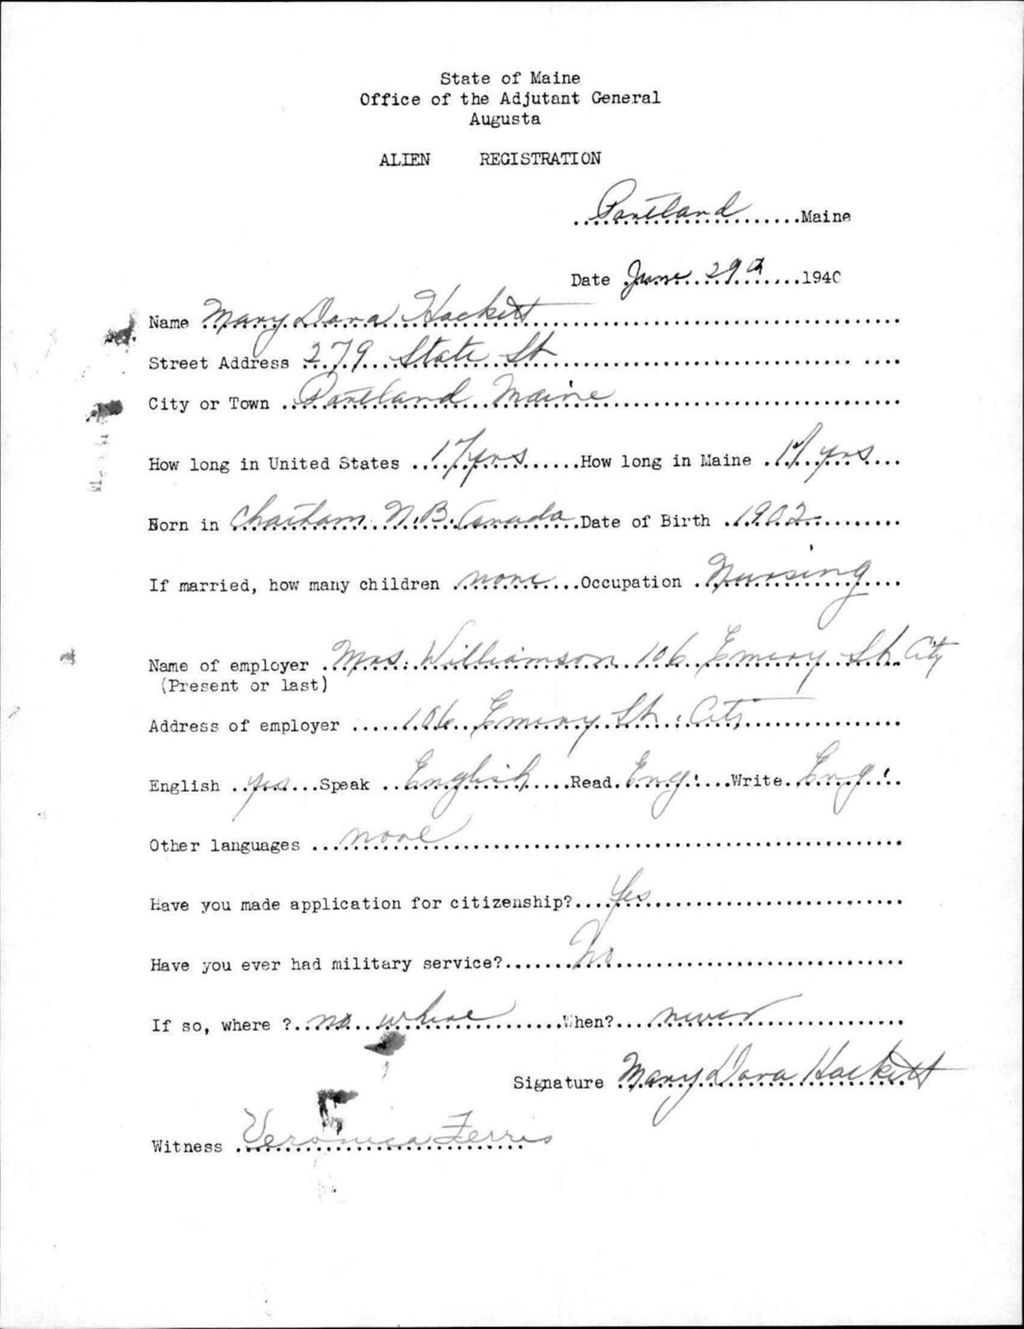 State of Maine
Office of the Adjutant General
Augusta
ALIEN REGISTRATION
Portland Maine
Date June 29th 1940
Name Mary Dora Hackett
Street Address 279 State St
City or Town Portland Maine
How long in United States 17 yrs How long in Maine 17 yrs
Born in Chatham N.B. Canada Date of Birth 1902
If married, how many children none Occupation Nursing
Name of employer Mrs. Williamson 106 Emery St. City
(Present or last)
Address of employer 106 Emery St. City
English yes Speak English Read Eng. Write Eng.
Other languages none
Have you made application for citizenship? Yes
Have you ever had military service? No
If so, where ? no where When? never
Signature Mary Dora Hackett
Witness Veronica Ferris